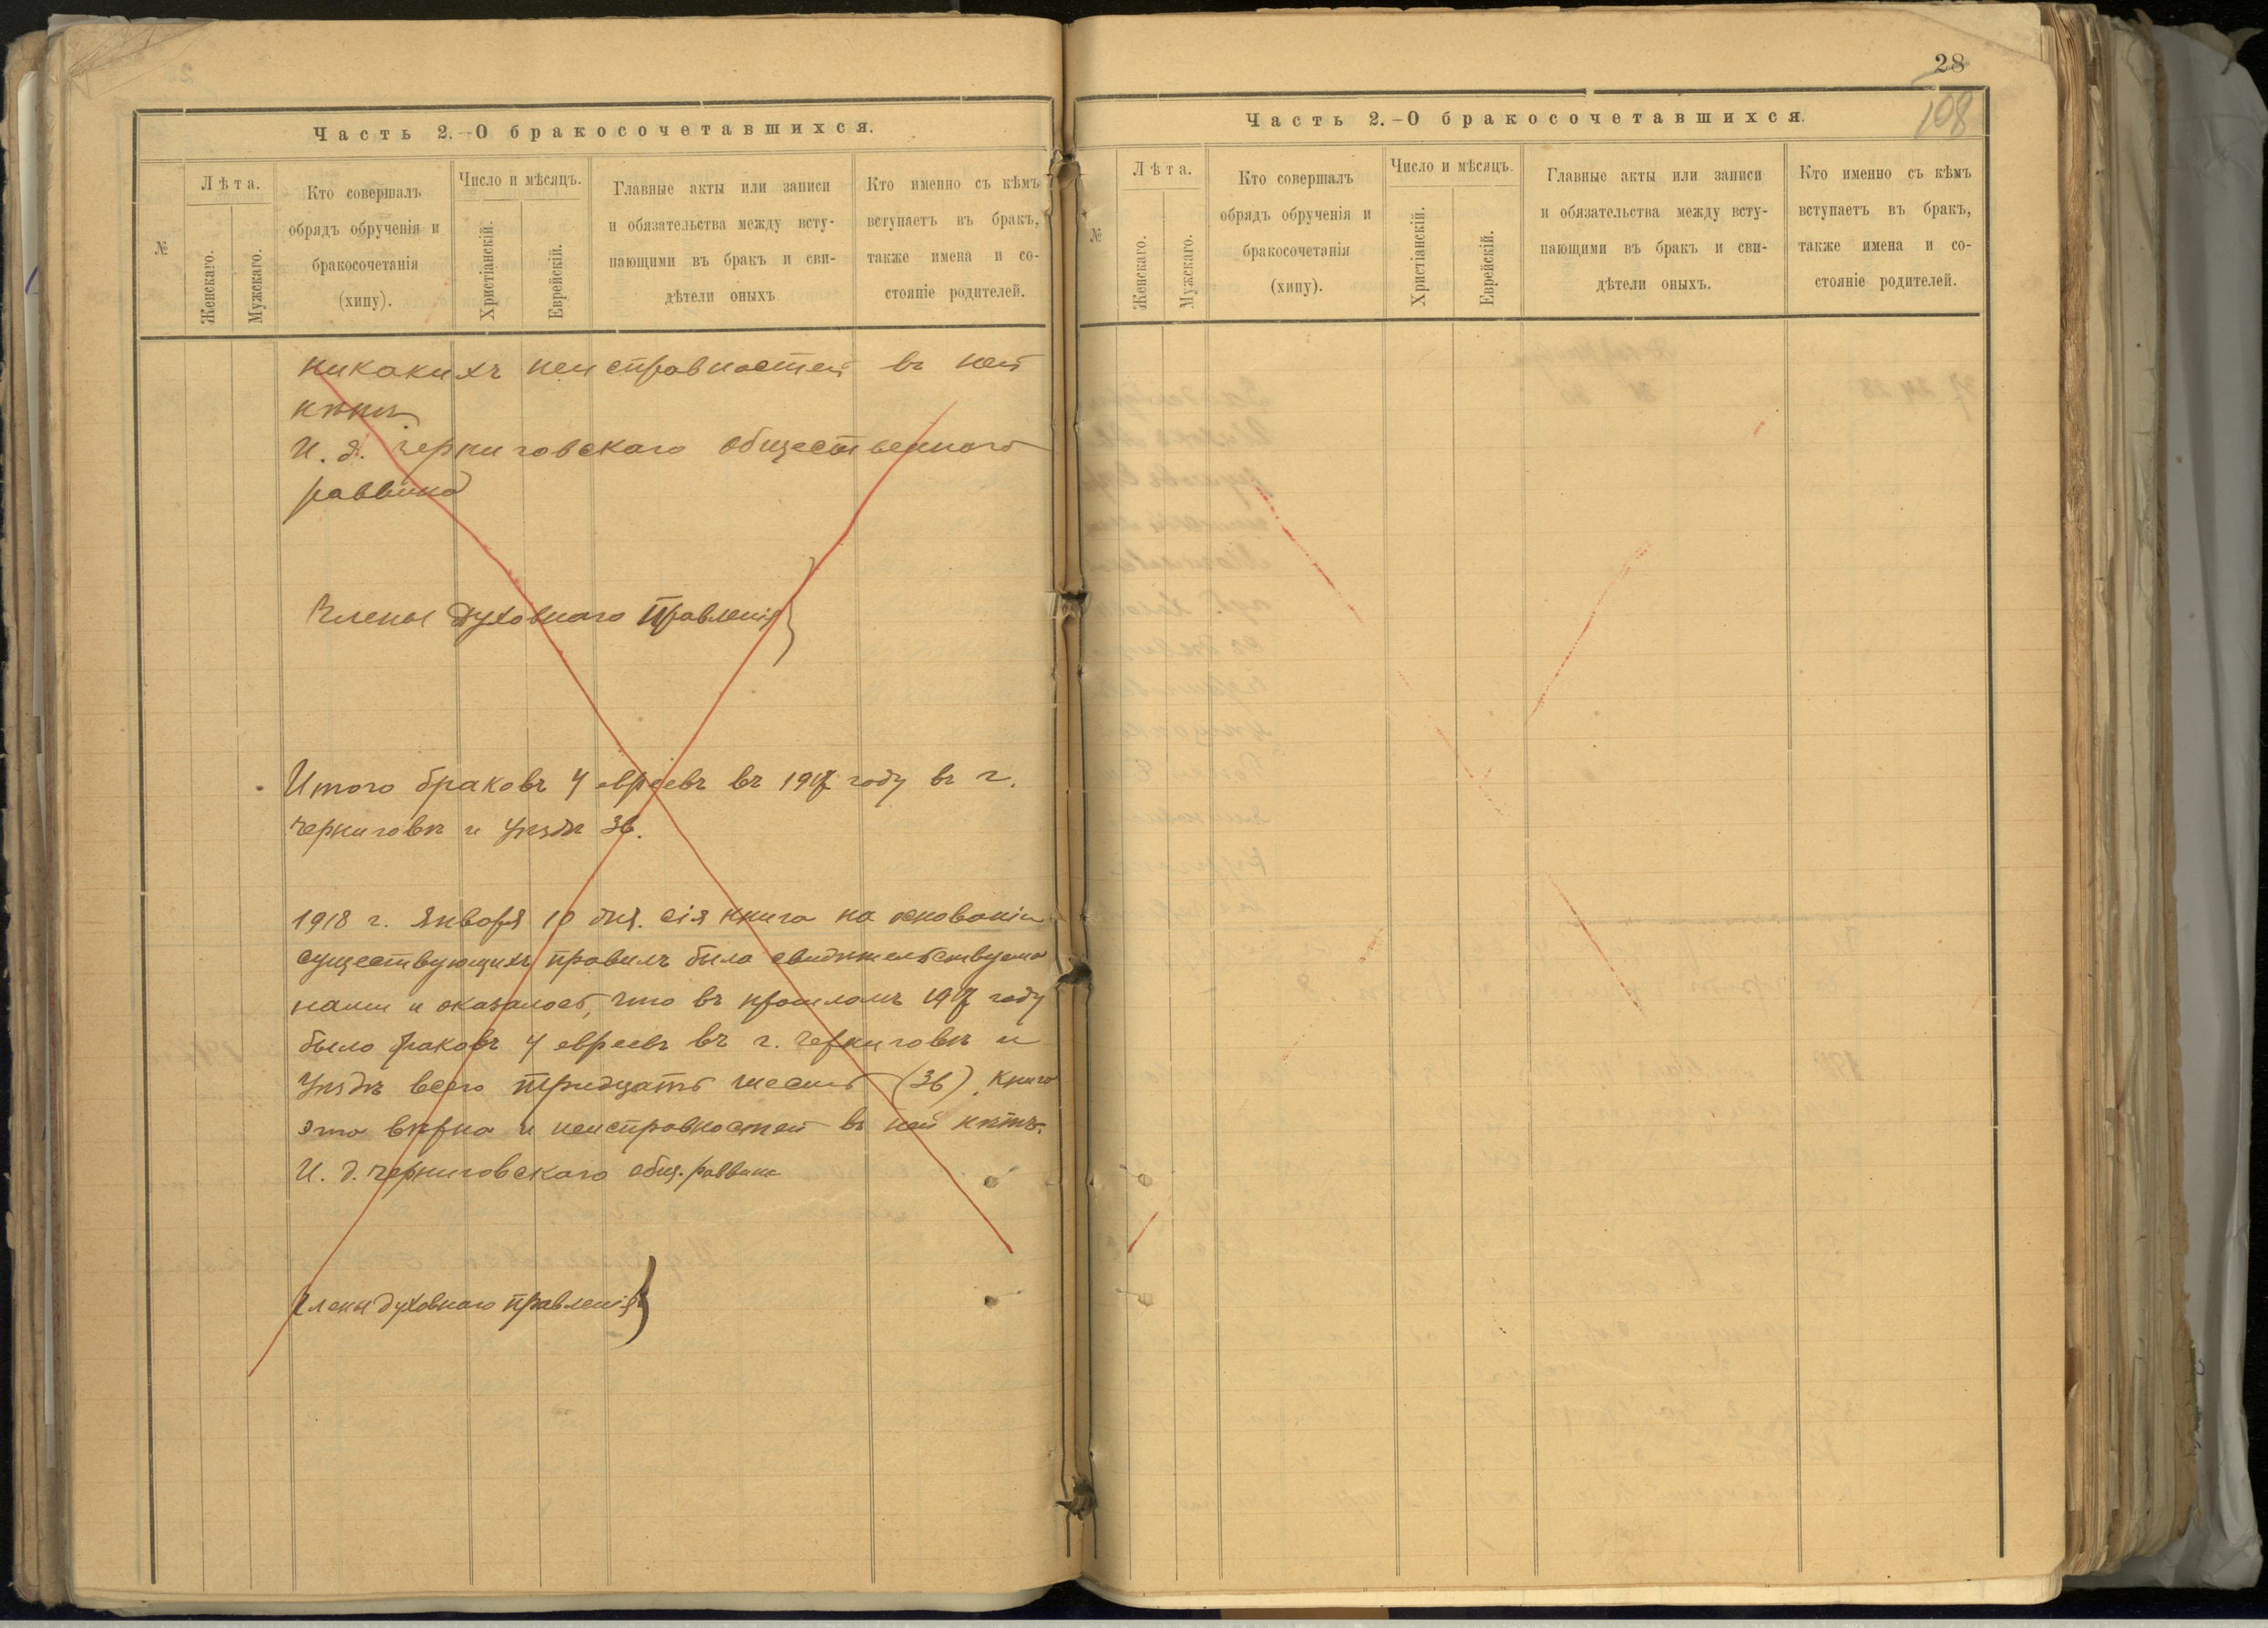 Часть 2.—О бракосочетавшихся.
№
Лѣта.
Женскаго.
Мужскаго.
Кто совершалъ
обрядъ обрученія и
бракосочетанія
(хипу).
Число и мѣсяцъ.
Христіанскій.
Еврейскій.
Главные акты или записи
и обязательства между всту-
пающими въ бракъ и сви-
дѣтели оныхъ.
Кто именно съ кѣмъ
вступаетъ въ бракъ,
также имена и со-
стояніе родителей.
никакихъ неисправностей въ ней
нѣтъ.
И. д. Черниговскаго общественнаго
раввина
Члены Духовнаго Правленія }
Итого браковъ у евреевъ въ 1917 году въ г.
Черниговѣ и уѣздѣ 36.
1918 г. Января 10 дня. сія книга на основаніи
существующихъ правилъ была свидѣтельствуема
нами и оказалось, что въ прошломъ 1917 году
было браковъ у евреевъ въ г. Черниговѣ и
Уѣздѣ всего тридцать шесть (36). Книга
эта вѣрна и неисправностей въ ней нѣтъ.
И. д. Черниговскаго общ. раввина
Члены Духовнаго Правленія }
28
108
Часть 2.—О бракосочетавшихся.
№
Лѣта.
Женскаго.
Мужскаго.
Кто совершалъ
обрядъ обрученія и
бракосочетанія
(хипу).
Число и мѣсяцъ.
Христіанскій.
Еврейскій.
Главные акты или записи
и обязательства между всту-
пающими въ бракъ и сви-
дѣтели оныхъ.
Кто именно съ кѣмъ
вступаетъ въ бракъ,
также имена и со-
стояніе родителей.